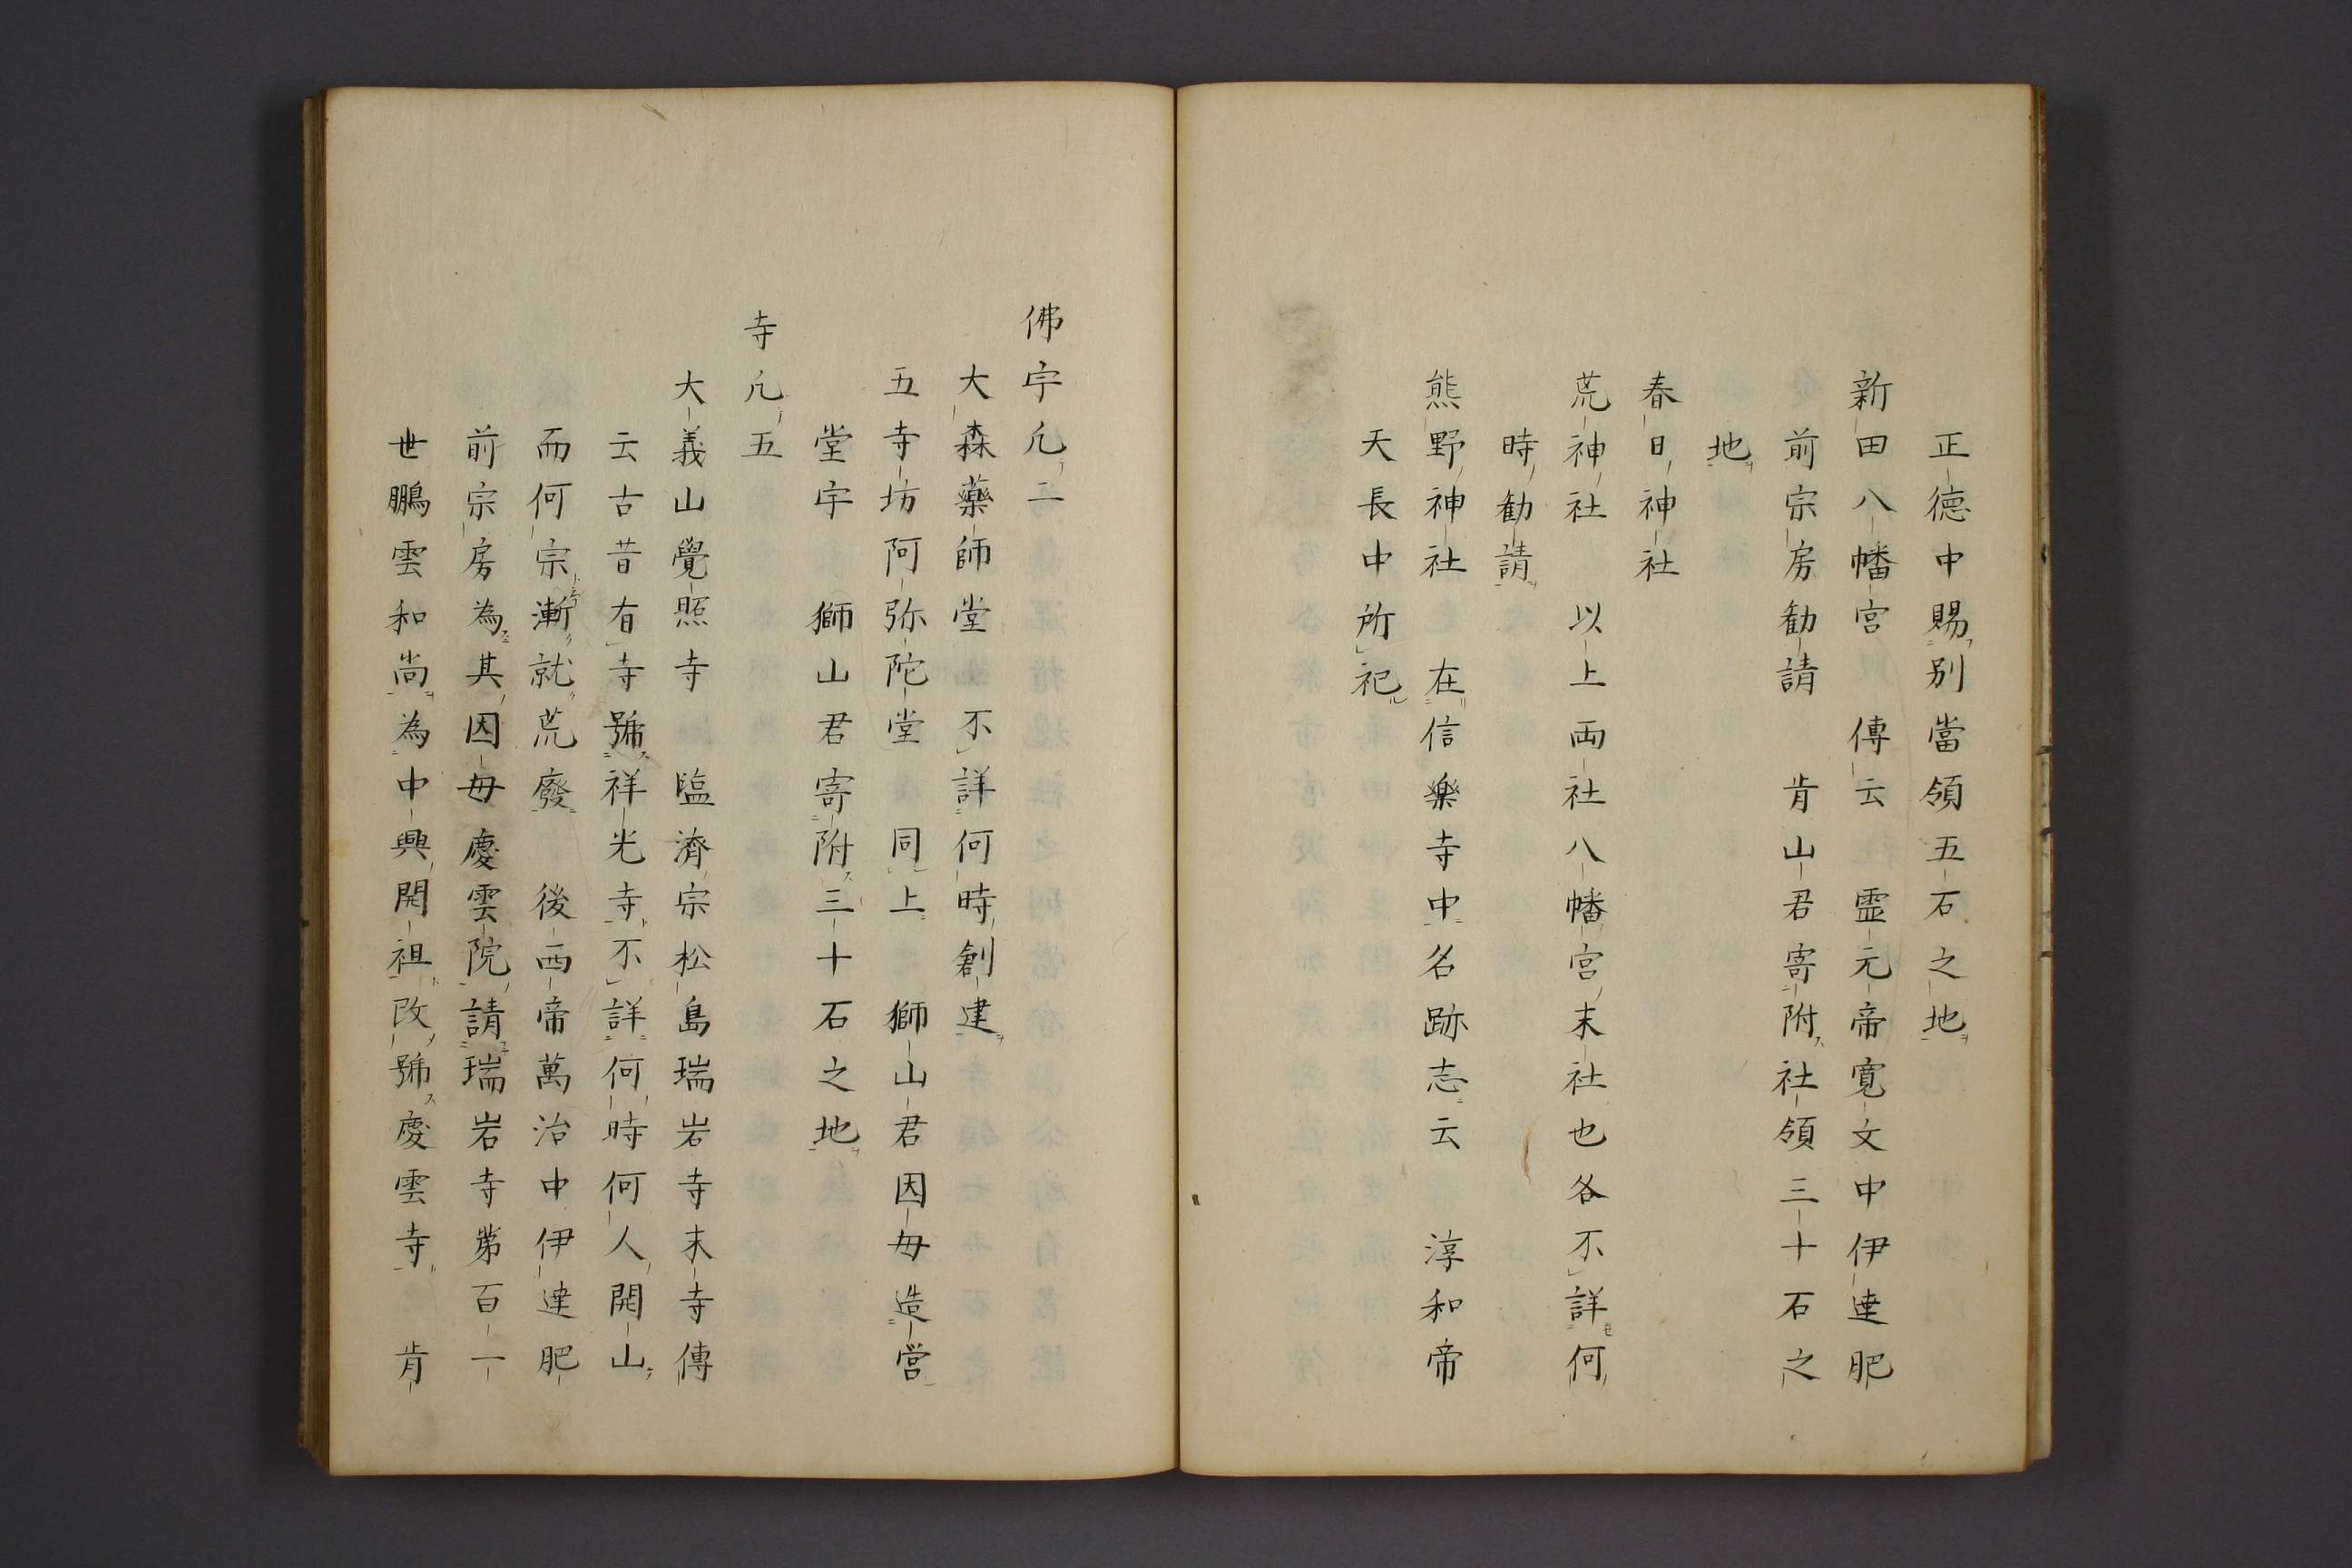 正德中賜別當領五石之地
新田八幡宮 傳云 霊元帝寛文中伊達肥
前宗房勧請 肯山君寄附社領三十石之
地
春日神社
荒神社 以上両社八幡宮末社也各不詳何
時勧請
熊野神社 在信樂寺中名跡志云 淳和帝
天長中所祀
佛宇凢二
大森藥師堂 不詳何時創建
五寺坊阿弥陀堂 同上 獅山君因毎造営
堂宇 獅山君寄附三十石之地
寺凢五
大義山覺照寺 臨濟宗松島瑞岩寺末寺傳
云古昔有寺號祥光寺不詳何時何人開山
而何宗漸就荒廢 後西帝萬治中伊達肥
前宗房為其因毎慶雲院請瑞岩寺第百一
世鵬雲和尚為中興開祖改號慶雲寺 肯